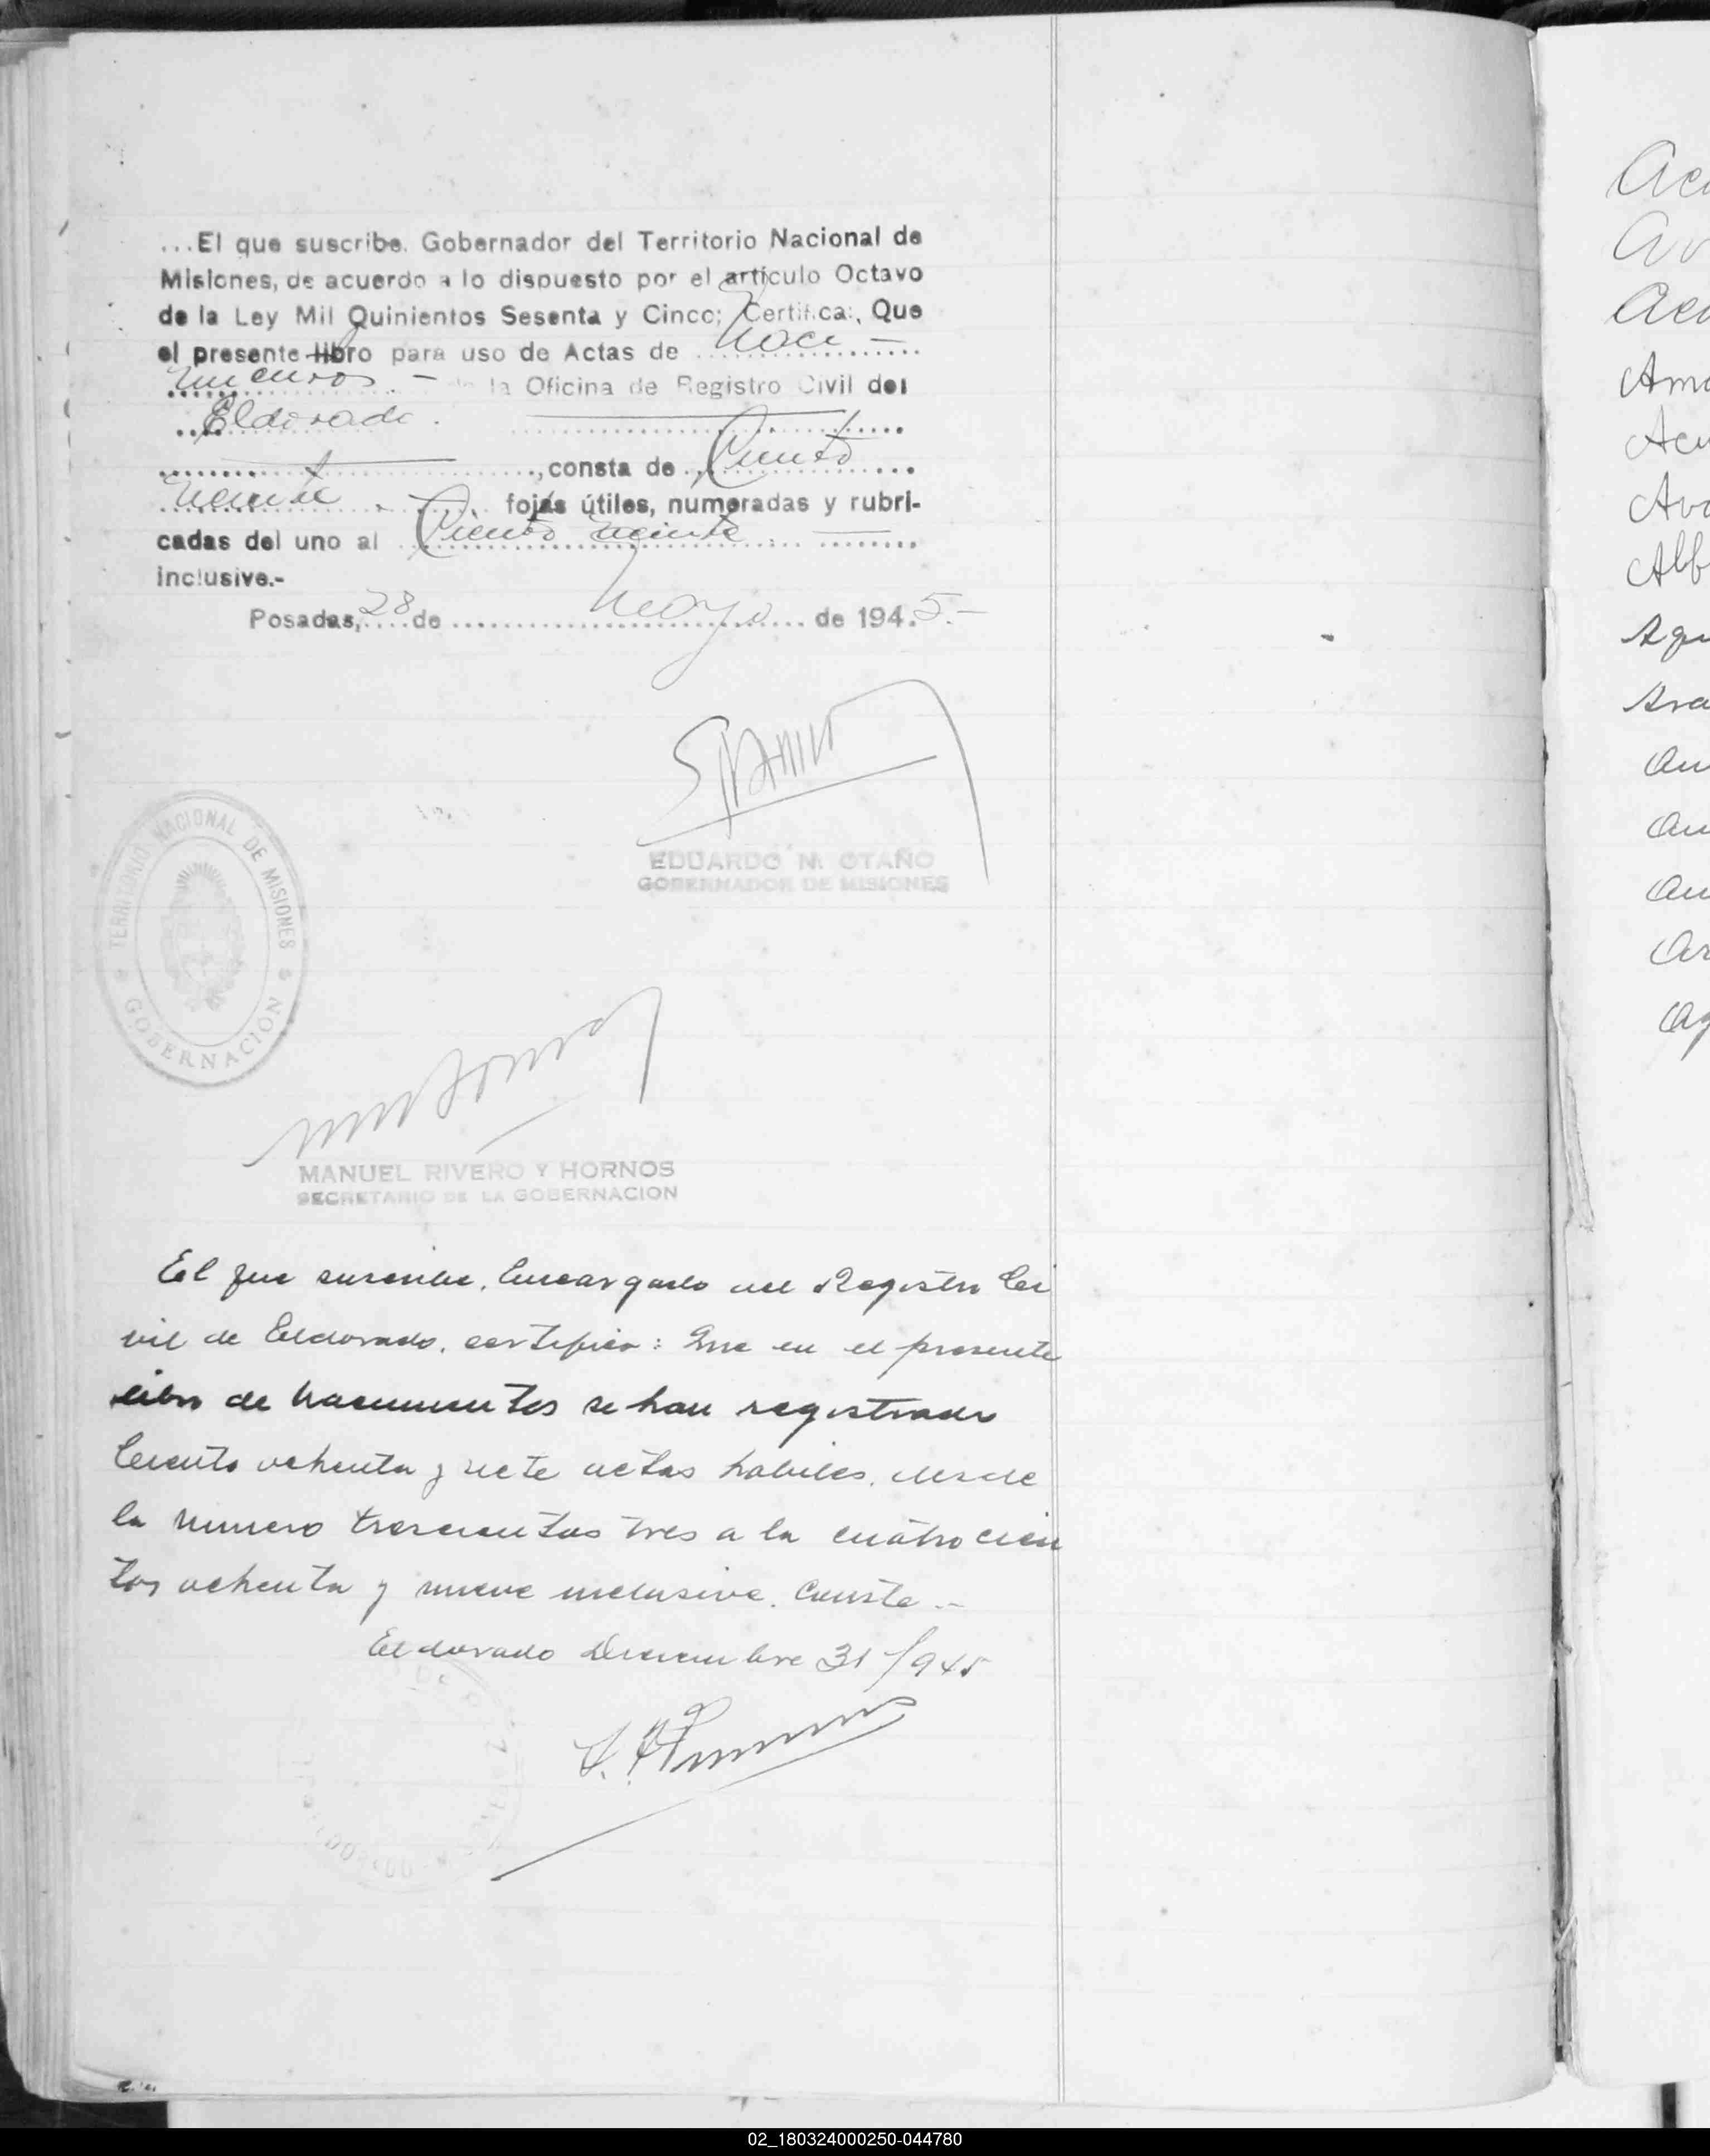 ...El que suscribe. Gobernador del Territorio Nacional de
Misiones, de acuerdo a lo dispuesto por el artículo Octavo
de la Ley Mil Quinientos Sesenta y Cinco; Certifica:, Que
el presente libro para uso de Actas de Naci-
mientos.- de la Oficina de Registro Civil del
Eldorado.
, consta de Ciento
veinte. fojas útiles, numeradas y rubri-
cadas del uno al Ciento veinte
inclusive.-
Posadas, 28 de Mayo de 1945.-
EDUARDO N. OTAÑO
GOBERNADOR DE MISIONES
TERRITORIO NACIONAL DE MISIONES
GOBERNACION
MANUEL RIVERO Y HORNOS
SECRETARIO DE LA GOBERNACION
El que suscribe, Encargado del Registro Ci
vil de Eldorado, certifica: Que en el presente
libro de Nacimientos se han registrado
Ciento ochenta y siete actas habiles, desde
la numero trescientos tres a la cuatrocien
tos ochenta y nueve inclusive. Conste.-
Eldorado Diciembre 31/945
Ac
Av
Ac
Am
Acu
Avo
Alf
Aqu
Ara
Au
Au
Au
Ar
Ag
02_180324000250-044780